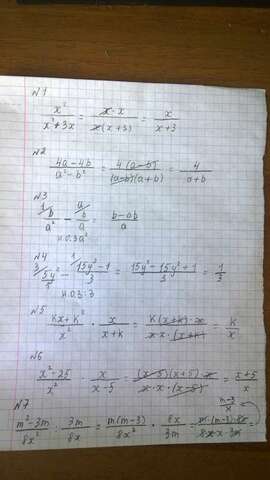 №1
x²/(x²+3x) = x·x/(x(x+3)) = x/(x+3)
№2
(4a-4b)/(a²-b²) = 4(a-b)/((a-b)(a+b)) = 4/(a+b)
№3
b/a² - b/a = (b-ab)/a
н.о.з a²
№4
5y²/1 - (15y²-1)/3 = (15y²-15y²+1)/3 = 1/3
н.о.з: 3
№5
(kx+k²)/x² · x/(x+k) = k(x+k)·x/(x·x·(x+k)) = k/x
№6
(x²-25)/x² · x/(x-5) = (x-5)(x+5)·x/(x·x·(x-5)) = (x+5)/x
№7
(m²-3m)/8x² : 3m/8x = m(m-3)/8x² · 8x/3m = m·(m-3)·8x/(8x·x·3m) =
(m-3)/x